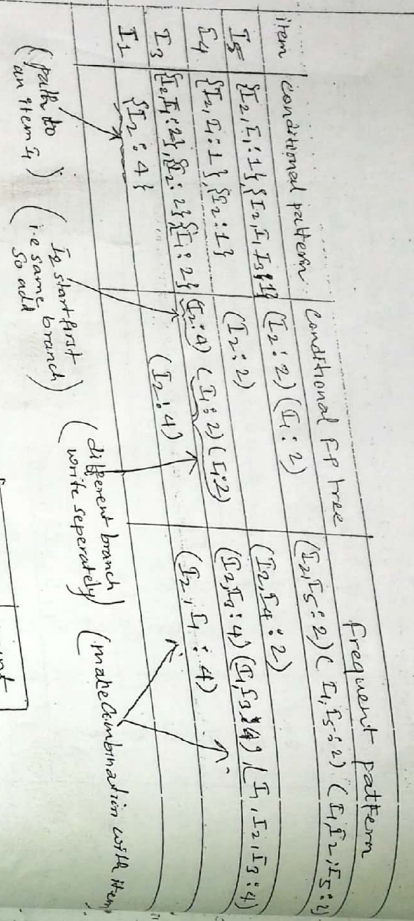 item conditional pattern conditional FP tree frequent pattern
I5 {I2,I1:1},{I2,I1,I3:1} (I2:2)(I1:2) (I2,I5:2)(I1,I5:2)(I1,I2,I5:2
I4 {I2,I1:1},{I2:1} (I2:2) (I2,I4:2)
I3 {I2,I1:2},{I2:2}{I1:2} (I2:4)(I1:2)(I1:2) (I2,I3:4)(I1,I3:4),(I1,I2,I3:4)
I1 {I2:4} (I2:4) (I2,I1:4)
(path to
an item I1)
(I2 start first
i.e same branch
so add)
(different branch
write seperately)
(make combination with item